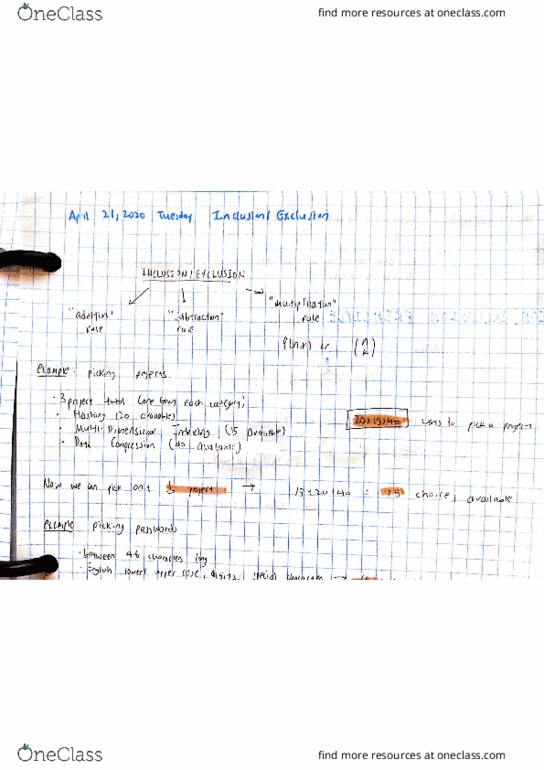 OneClass
find more resources at oneclass.com
April 21, 2020 Tuesday Inclusion/Exclusion
INCLUSION/EXCLUSION
"Addition" rule
"subtraction" rule
"multiplication" rule
P(n,k) or (n k)
example: picking projects
· 3 project total (one from each category)
· Hashing (20 available)
· Multi-Dimensional Indexing (15 available)
· Data Compression (40 available)
20×15×40 ways to pick a project
Now we can pick only 1 project → 15+20+40 = 75 choices available
example: picking passwords
· between 4-6 characters long
· English lower/upper case, digits, special
OneClass
find more resources at oneclass.com